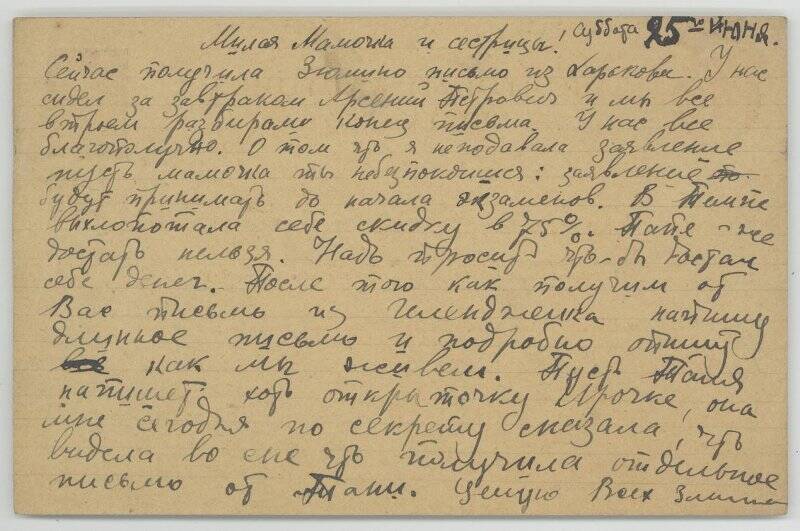 Суббота 25го июня.
Милая Мамочка и сестрицы!
Сейчас получила Зюмино письмо из Харькова. У нас
сидел за завтраком Арсений Петрович и мы все
втроем разбирали конец письма. У нас все
благополучно. О том что я неподавала заявление
пусть мамочка ты небезпокоишся: заявление
будут принимать до начала экзаменов. В Темпе
выхлопотала себе скидку в 75%. Папе - же
достать нельзя. Надо просить что-бы достал
себе денег. После того как получим от
Вас письмо из Геленджика напишу
длинное письмо и подробно опишу
как мы живем. Пусть Таня
напишет хоть открыточку Ирочке, она
мне сегодня по секрету сказала, что
видела во сне что получила отдельное
письмо от Тани. Целую Всех